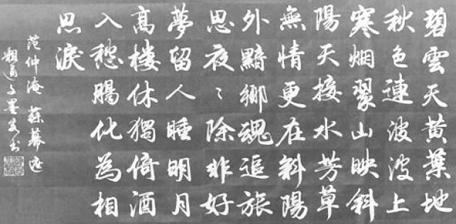 碧雲天黃葉地
秋色連波波上
寒烟翠山映斜
陽天接水芳草
無情更在斜陽
外黯鄉魂追旅
思夜〻除非好
夢留人睡明月
高樓休獨倚酒
入愁腸化為相
思淚
范仲淹 蘇幕遮